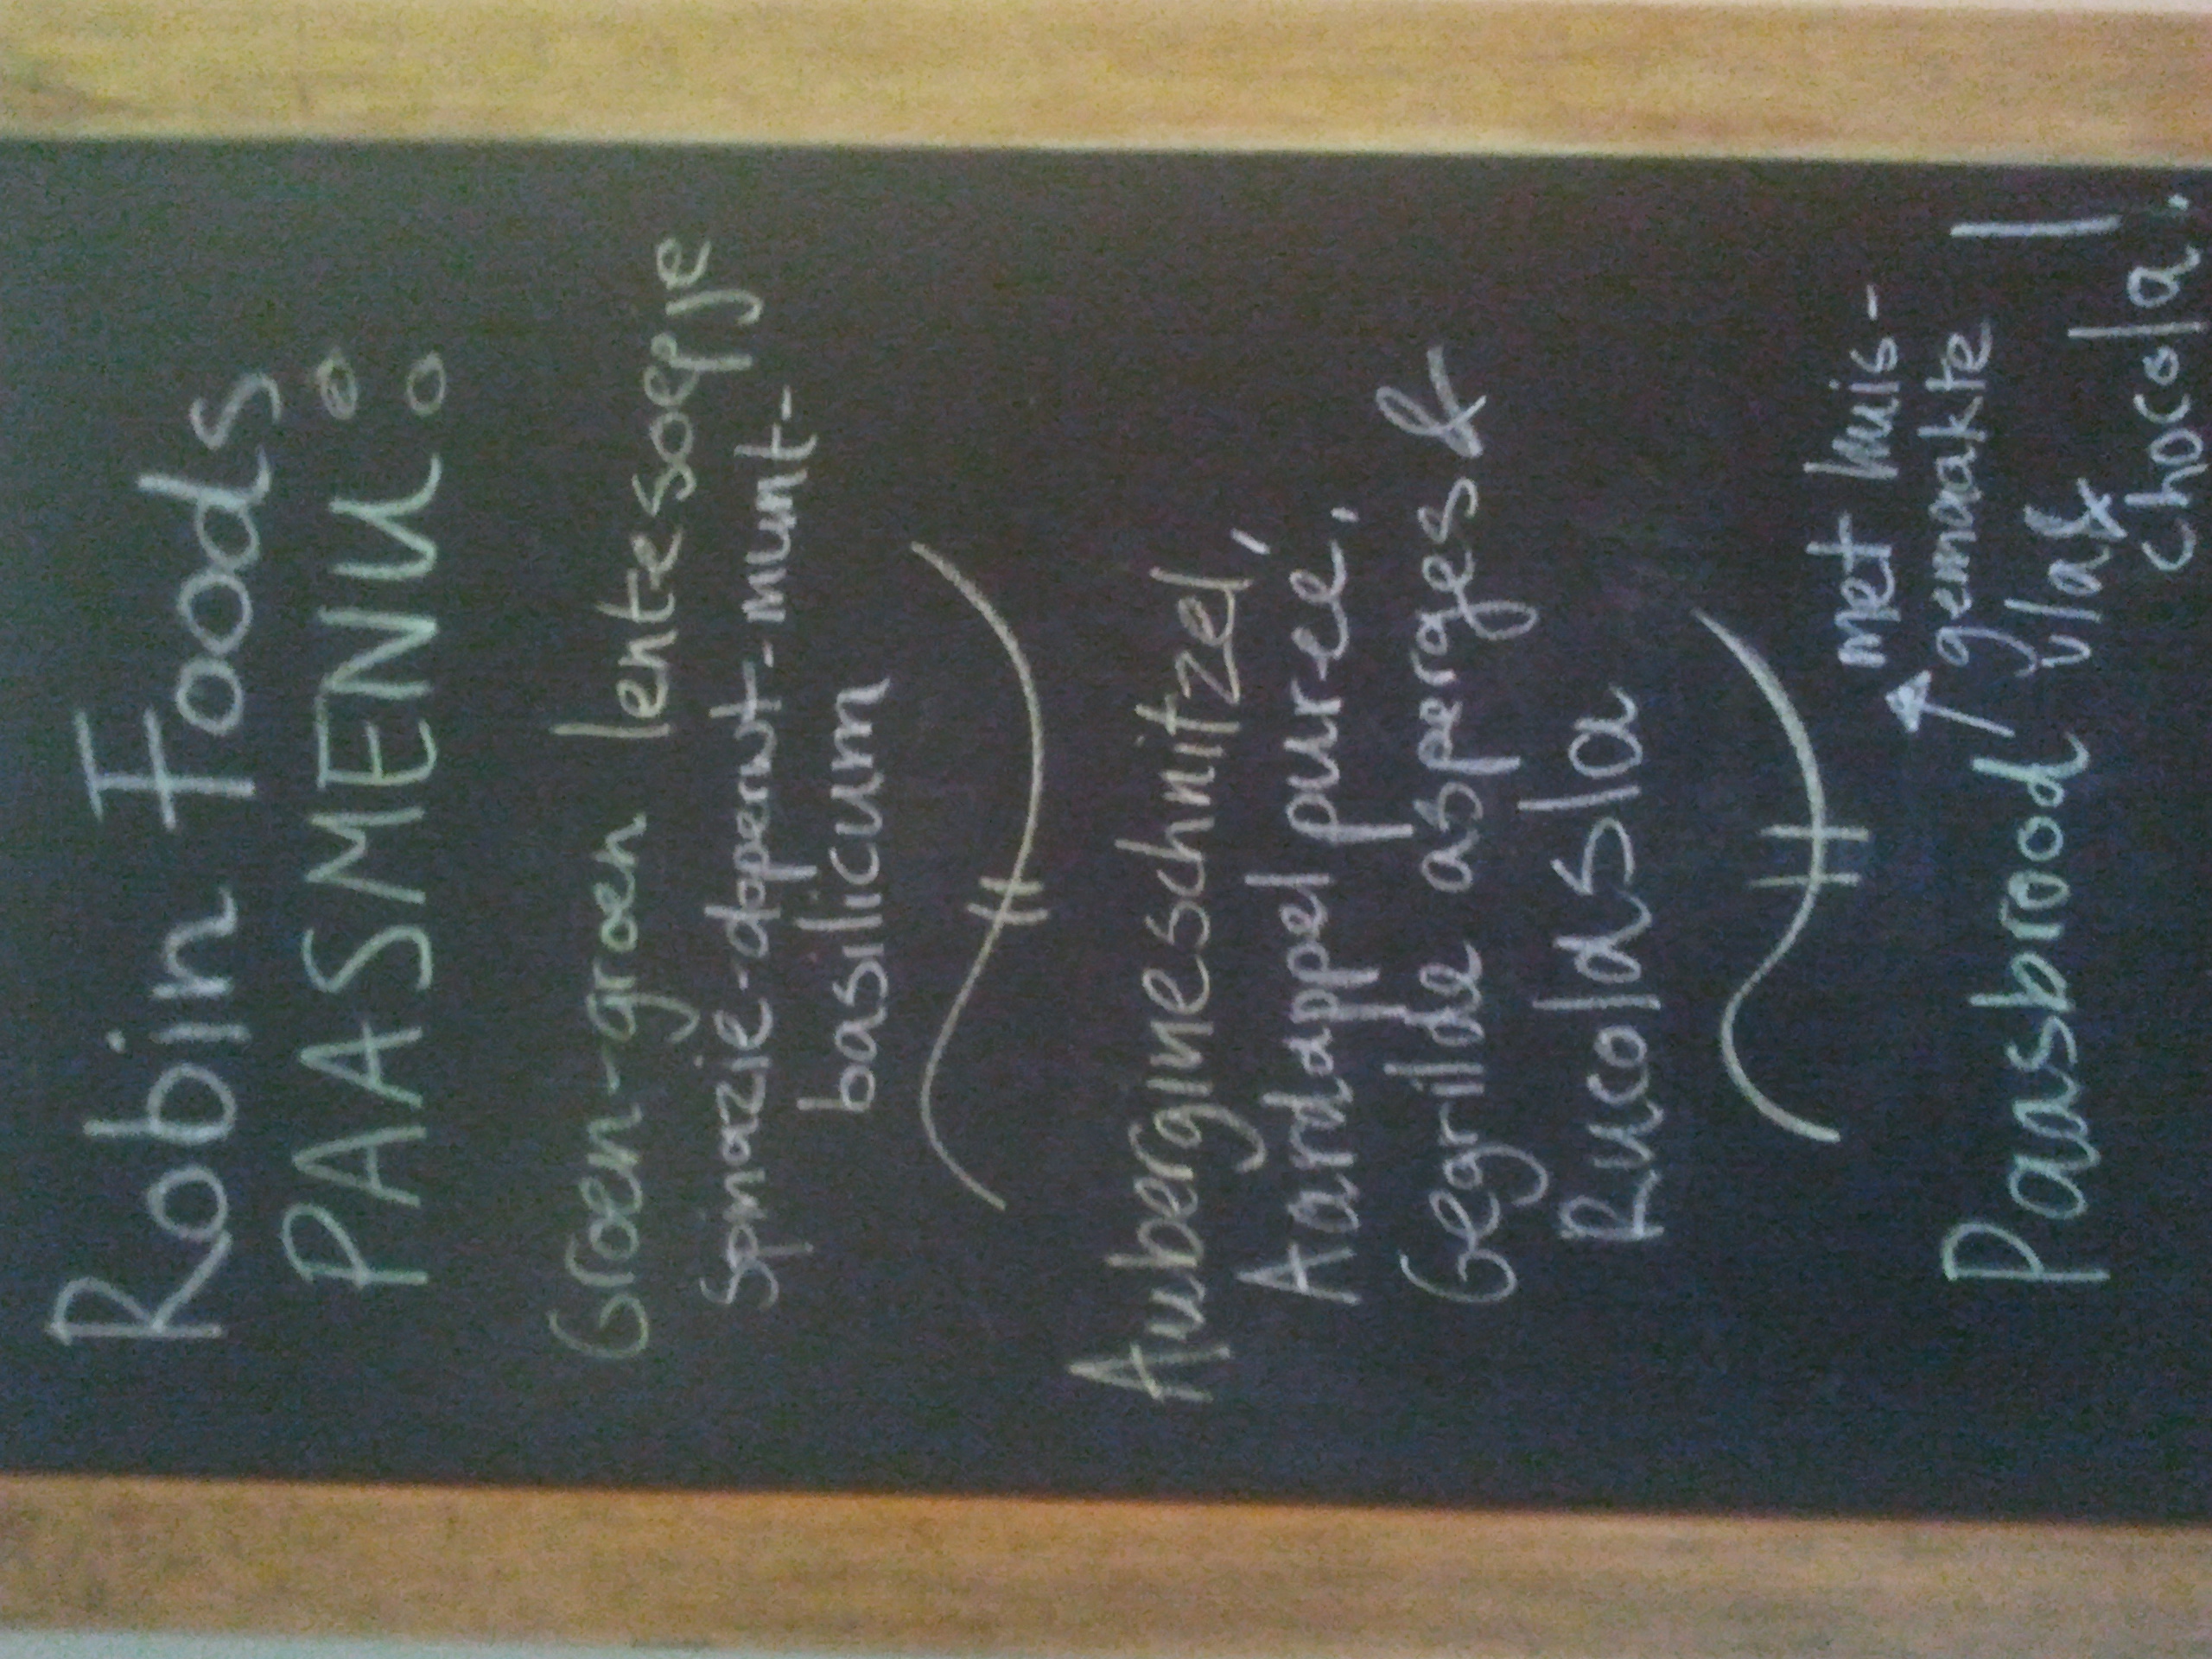 Robin Foods
PAASMENU:
Groen-groen lentesoepje
Spinazie-doperwt-munt-
basilicum
Aubergineschnitzel,
Aardappel puree,
Gegrilde asperges &
Rucolasla
Paasbrood
met huis-
gemaakte
vla &
chocola!